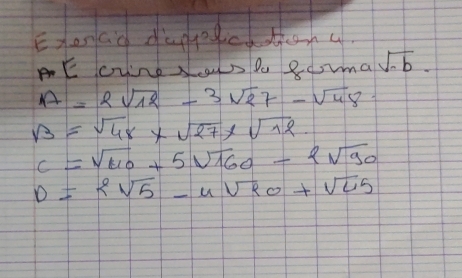 Exercice d'application 4.
A- Ecrire sous la forme a√b.
A = 2√12 - 3√27 - √48.
B = √48 × √27 × √12.
C = √40 + 5√160 - 2√90
D = 2√5 - 4√20 + √45